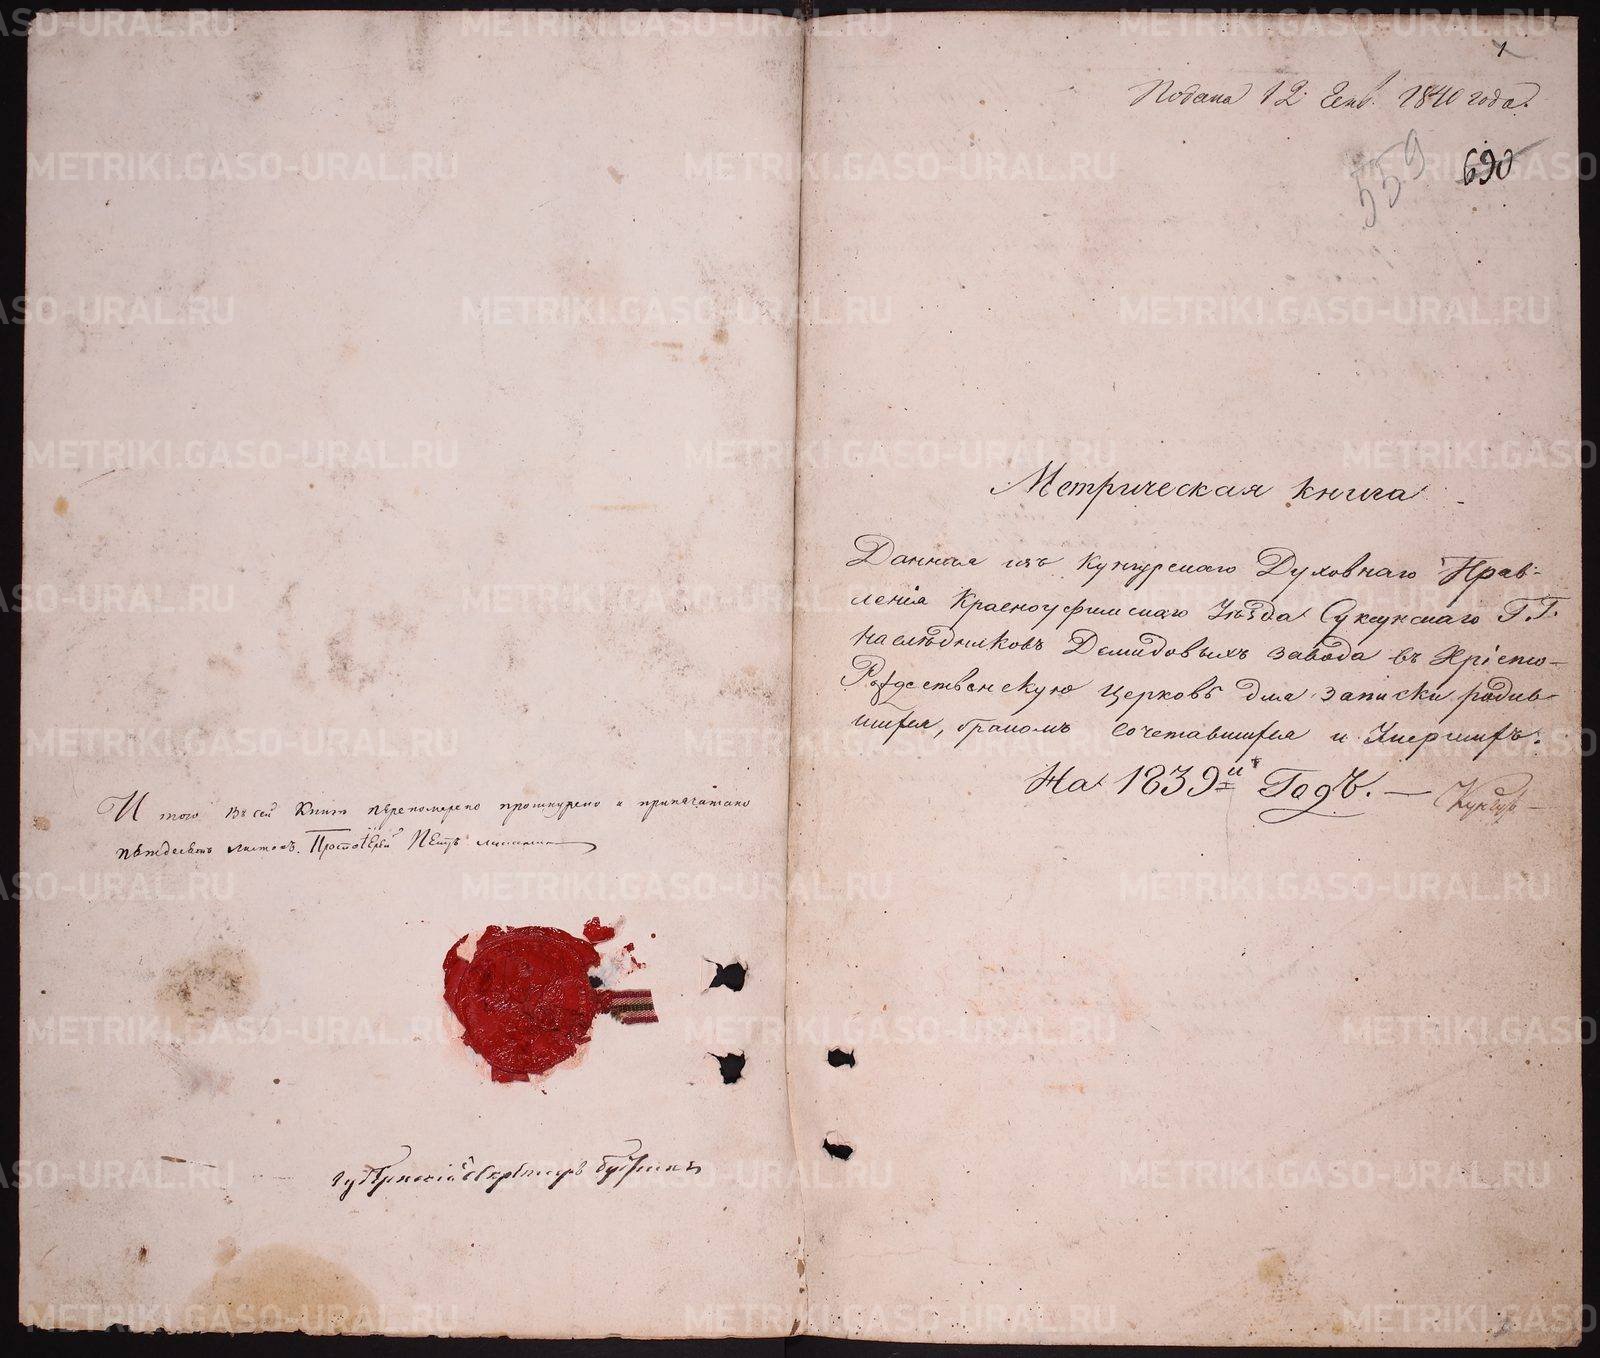 И того въ сей Книги перенумерено прошнурено и припечатано
пѣтдесять листовъ. Протоіерей Петръ
губернскій секретарь
1
Подана 12 Генв. 1840 года.
559 690
Метрическая книга
Данная изъ Кунгурскаго Духовнаго Прав-
ленія Красноуфимскаго Уѣзда Суксунскаго Г.Г.
наслѣдниковъ Демидовыхъ завода въ Хрісто-
Рождественскую церковь для записки родив-
шихся, бракомъ сочетавшихся и Умершихъ.
На 1839й Годъ. —
METRIKI.GASO-URAL.RU